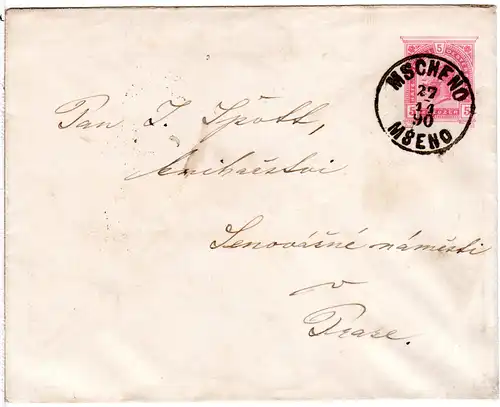 5
MSCHENO
27
12
90
MŠENO
5 5
Pan I. Špott,
knihařství
Senovážné náměstí
v
Praze.